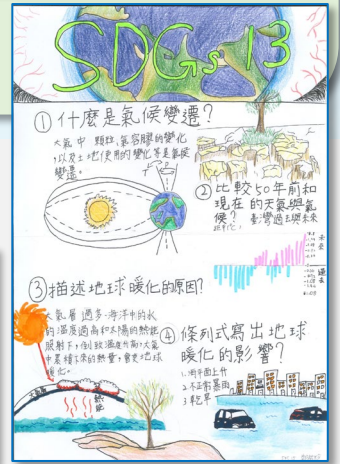 SDGs 13
①什麼是氣候變遷?
大氣中 顆粒、氣容膠的變化
,以及土地使用的變化等是氣候
變遷。
②比較50年前和
現在的天氣與氣
候? 臺灣過去與未來
③描述地球暖化的原因?
大氣層過多,海洋中的水
的溫度過高和太陽的熱能
照射下,倒致溫度升高,大氣
暖化。
④條列式寫出地球
暖化的影響?
1.海平面上升
2.不正常暴雨
3.乾旱
未來
過去